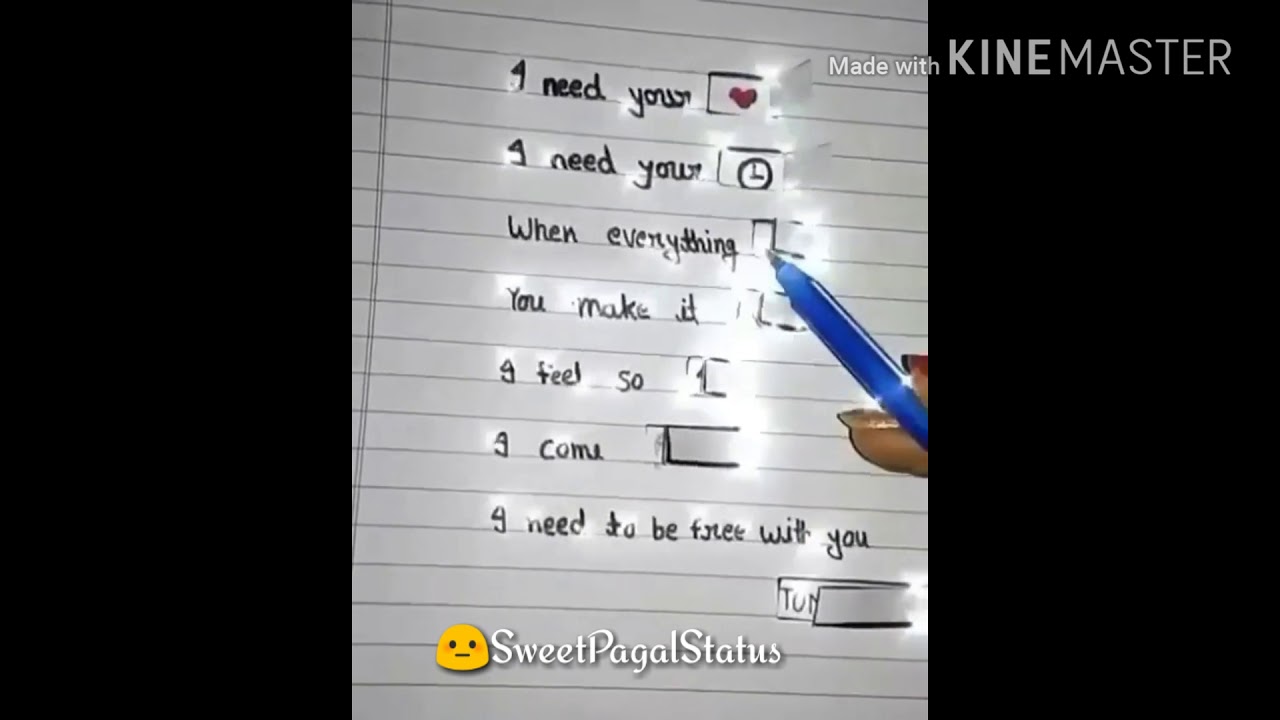 Made with KINEMASTER
I need your
I need your
When everything
You make it
I feel so
I come
I need to be free with you
TUM
SweetPagalStatus